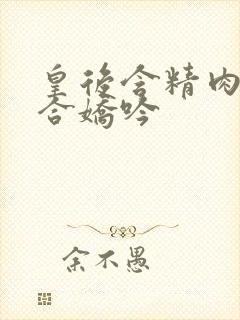 皇後含精肉
合嬌吟
余不愚